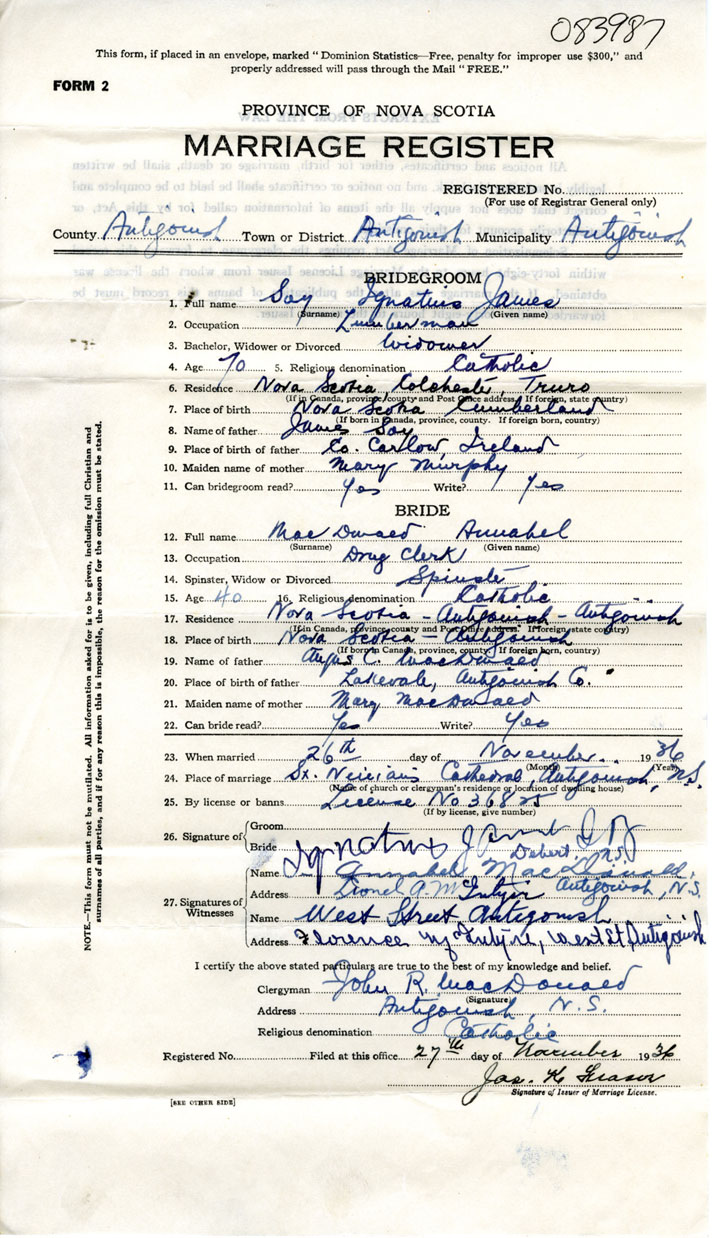 083987
This form, if placed in an envelope, marked "Dominion Statistics—Free, penalty for improper use $300," and
properly addressed will pass through the Mail "FREE."
FORM 2
PROVINCE OF NOVA SCOTIA
MARRIAGE REGISTER
REGISTERED No.
(For use of Registrar General only)
County Antigonish Town or District Antigonish Municipality Antigonish
BRIDEGROOM
1. Full name Soy Ignatius James
(Surname) (Given name)
2. Occupation Lumberman
3. Bachelor, Widower or Divorced Widower
4. Age 70 5. Religious denomination Catholic
6. Residence Nova Scotia, Colchester, Truro
(If in Canada, province, county and Post Office address. If foreign, state country)
7. Place of birth Nova Scotia Cumberland
(If born in Canada, province, county. If foreign born, country)
8. Name of father James Soy
9. Place of birth of father Co. Carlow, Ireland
10. Maiden name of mother Mary Murphy
11. Can bridegroom read? Yes Write? Yes
BRIDE
12. Full name MacDonald Annabel
(Surname) (Given name)
13. Occupation Drug Clerk
14. Spinster, Widow or Divorced Spinster
15. Age 40 16. Religious denomination Catholic
17. Residence Nova Scotia - Antigonish - Antigonish
(If in Canada, province, county and Post Office address. If foreign, state country)
18. Place of birth Nova Scotia - Antigonish
(If born in Canada, province, county. If foreign born, country)
19. Name of father Angus C. MacDonald
20. Place of birth of father Lakevale, Antigonish Co.
21. Maiden name of mother Mary MacDonald
22. Can bride read? Yes Write? Yes
23. When married 26th day of November 1936
(Month) (Year)
24. Place of marriage St. Ninian's Cathedral, Antigonish, N.S.
(Name of church or clergyman's residence or location of dwelling house)
25. By license or banns License No 36825
(If by license, give number)
26. Signature of Groom Ignatius James Soy
Bride Debert, N.S.
27. Signatures of Witnesses
Name Annabel MacDonald,
Address Lionel A. McIntyre Antigonish, N.S.
Name West Street Antigonish
Address Florence McIntyre, West St Antigonish
I certify the above stated particulars are true to the best of my knowledge and belief.
Clergyman John R. MacDonald
(Signature)
Address Antigonish, N.S.
Religious denomination Catholic
Registered No. Filed at this office 27th day of November 1936
Jas. K. Fraser
Signature of Issuer of Marriage License.
[SEE OTHER SIDE]
NOTE.—This form must not be mutilated. All information asked for is to be given, including full Christian and
surnames of all parties, and if for any reason this is impossible, the reason for the omission must be stated.